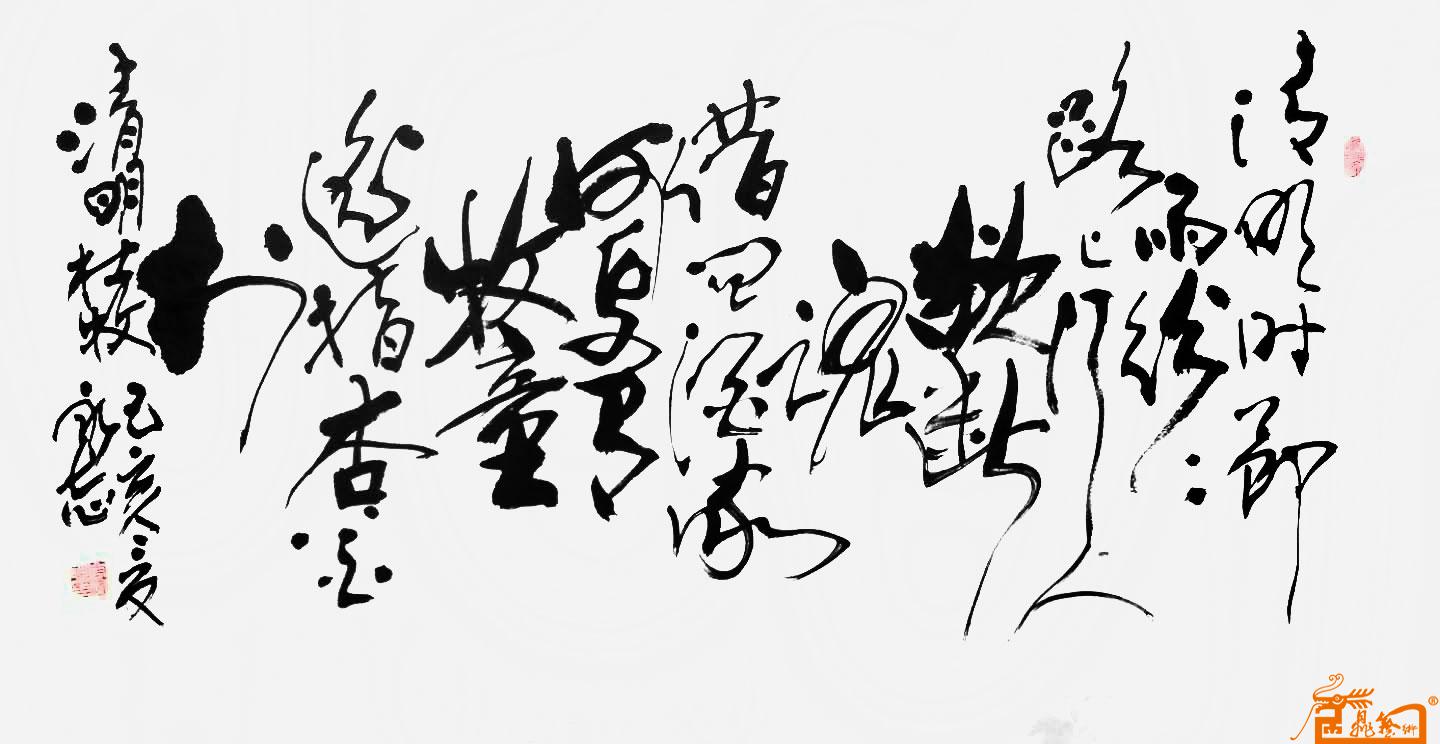 清明时节
雨纷纷
路上行人
欲断
魂
借问酒家
何处有
牧童
遥指杏花
村
清明杜牧
己亥之夏